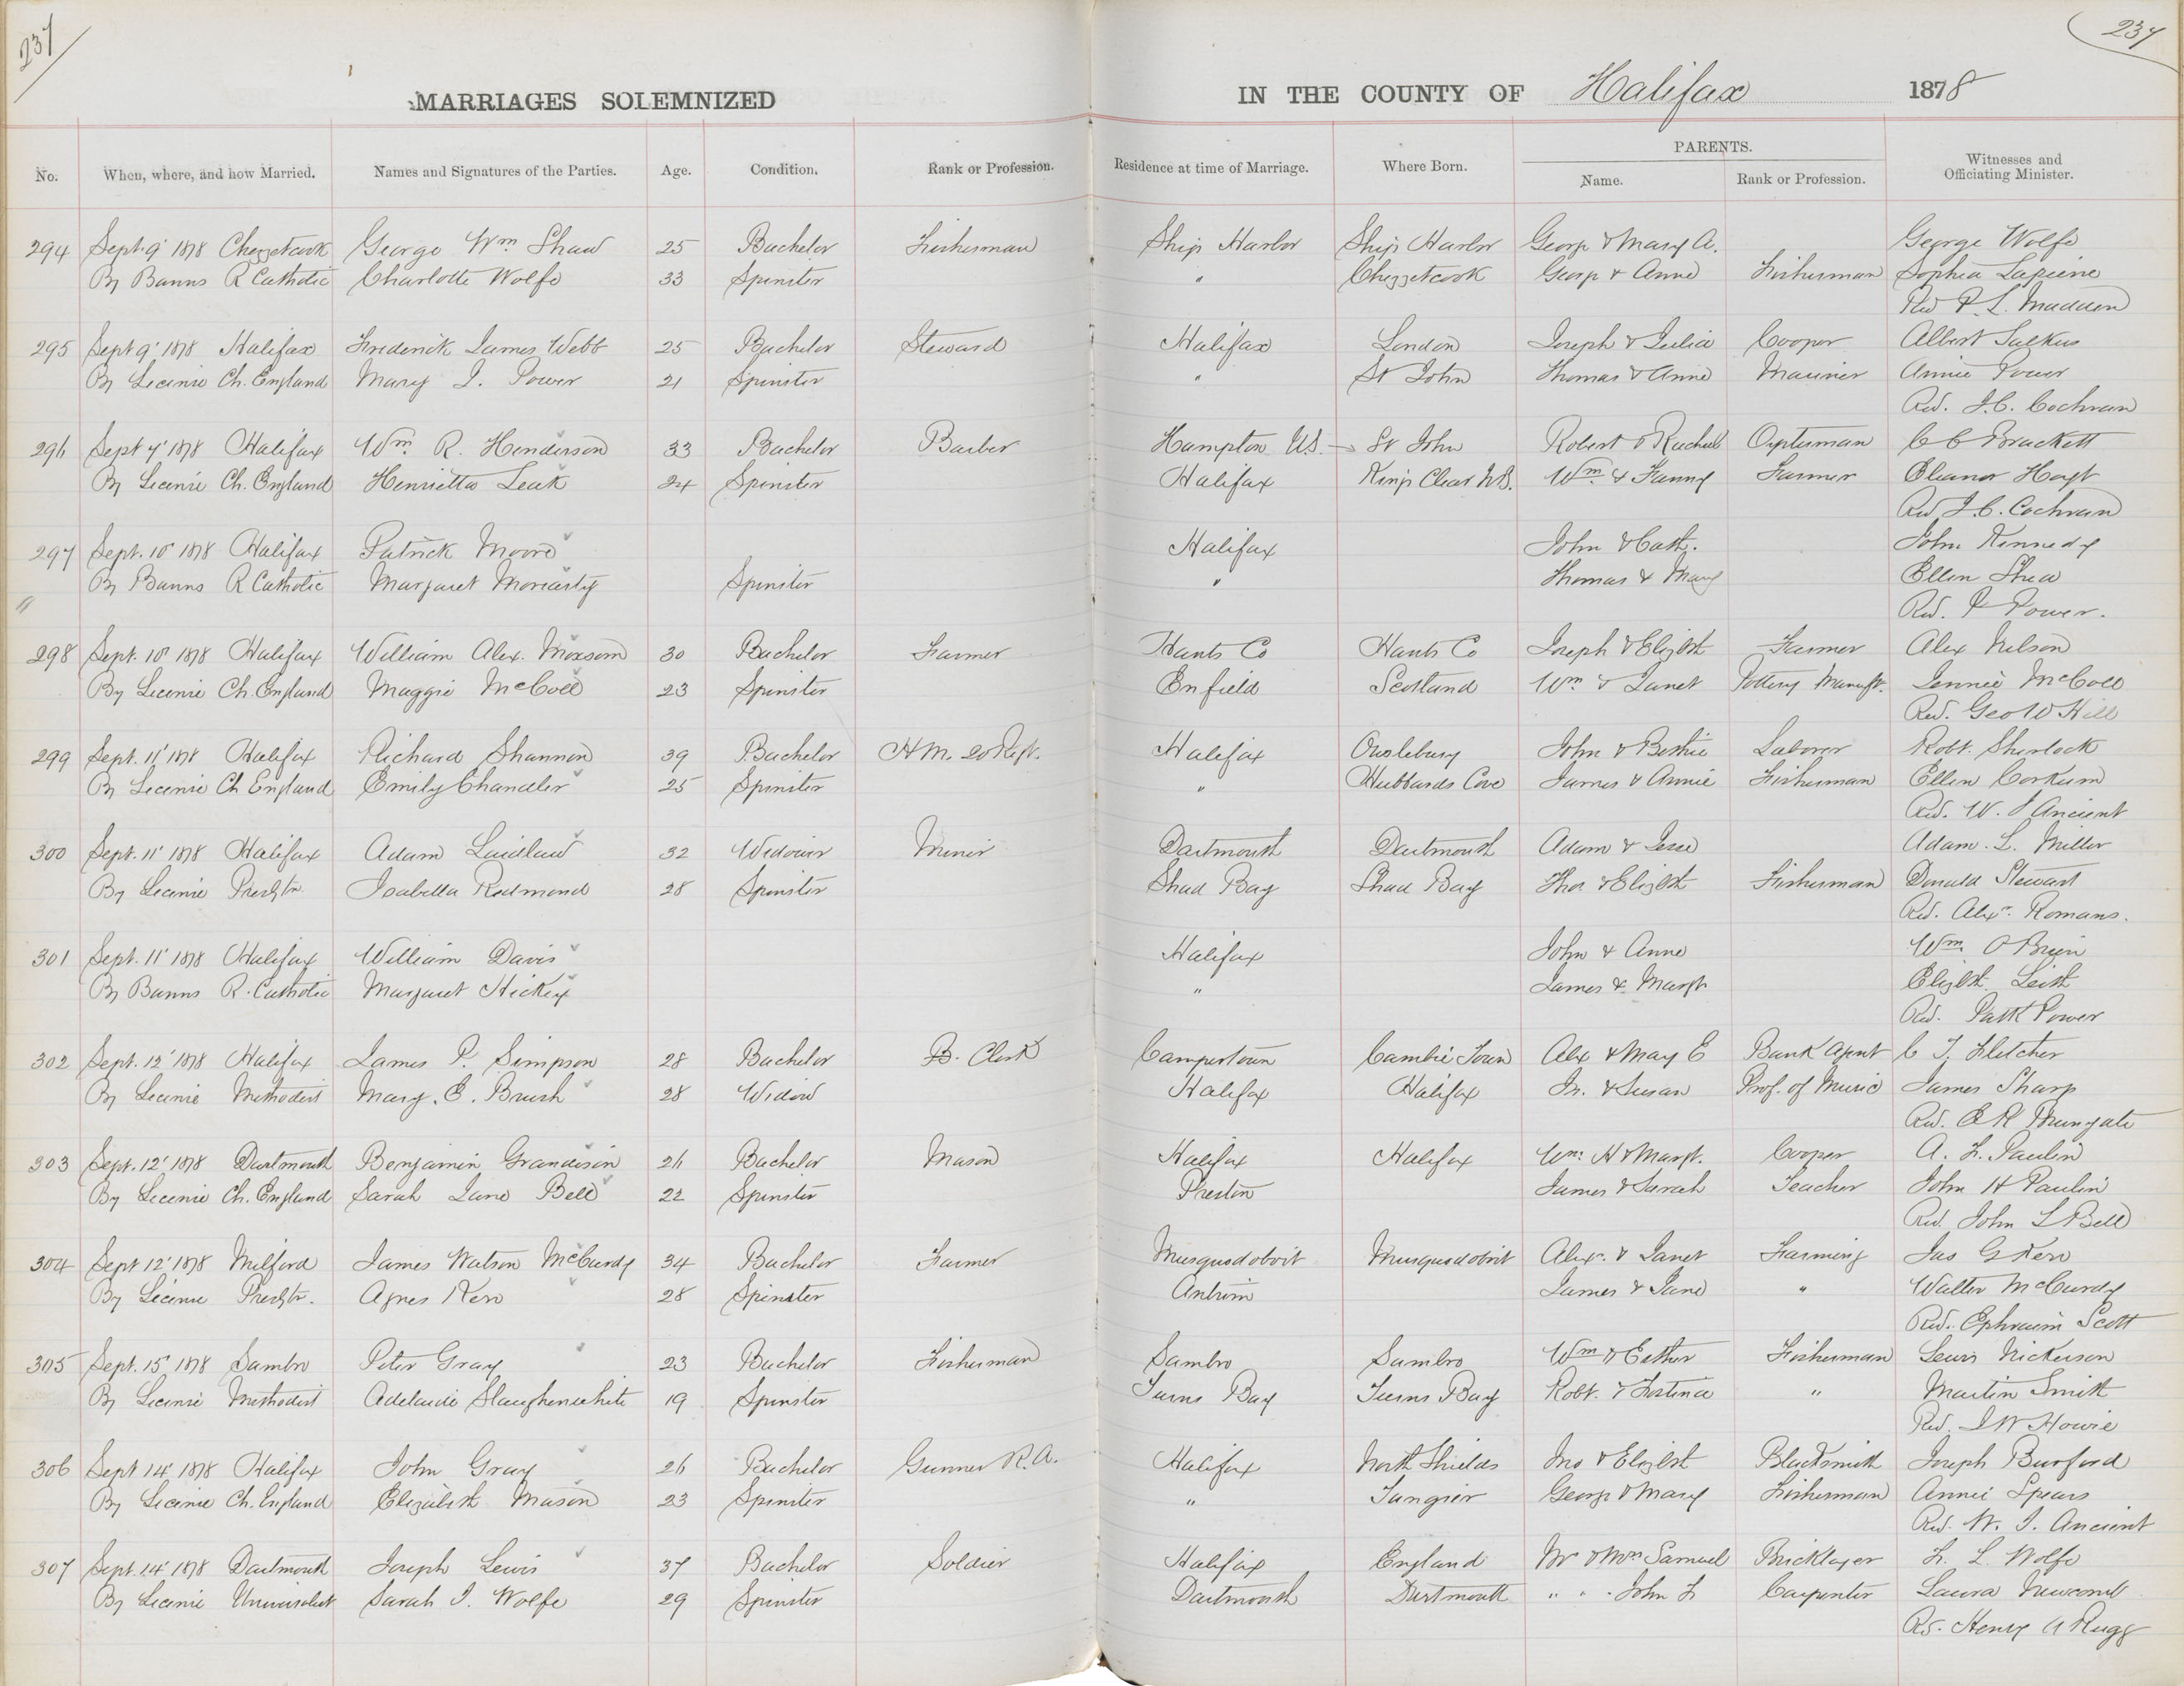 237
237
MARRIAGES SOLEMNIZED IN THE COUNTY OF Halifax 1878
No. When, where, and how Married. Names and Signatures of the Parties. Age. Condition. Rank or Profession. Residence at time of Marriage. Where Born. PARENTS. Name. Rank or Profession. Witnesses and Officiating Minister.
294 Sept. 9' 1878 Chezzetcook George Wm Shaw 25 Bachelor Fisherman Ship Harbor Ship Harbor George & Mary A. George Wolfe
By Banns R Catholic Charlotte Wolfe 33 Spinster " Chezzetcook George & Anne Fisherman Sophia Lapierre
Rev P. L. Madden
295 Sept 9' 1878 Halifax Frederick James Webb 25 Bachelor Steward Halifax London Joseph & Julia Cooper Albert
By License Ch. England Mary J. Power 21 Spinster " St John Thomas & Anne Mariner Annie Power
Rev. J. C. Cochran
296 Sept 7' 1878 Halifax Wm R. Henderson 33 Bachelor Barber Hampton U.S. St John Robert & Rachel Oysterman C C Brackett
By License Ch. England Henrietta Leak 24 Spinster Halifax Kings Clear N.B. Wm & Fanny Farmer Eleanor Hoyt
Rev J. C. Cochran
297 Sept. 10' 1878 Halifax Patrick Moore Halifax John & Cath. John Kennedy
By Banns R Catholic Margaret Moriarty Spinster " Thomas & Mary Ellen Shea
Rev. P Power.
298 Sept. 10' 1878 Halifax William Alex. Moxsom 30 Bachelor Farmer Hants Co Hants Co Joseph & Elizbth Farmer Alex Nelson
By License Ch. England Maggie McColl 23 Spinster Enfield Scotland Wm & Janet Pottery Manuft. Jennie McColl
Rev. Geo W Hill
299 Sept. 11' 1878 Halifax Richard Shannon 39 Bachelor H.M. 20 Regt. Halifax Owslebury John & Bethie Laborer Robt. Sherlock
By License Ch England Emily Chandler 25 Spinster " Hubbards Cove James & Annie Fisherman Ellen Corkum
Rev. W. J Ancient
300 Sept. 11' 1878 Halifax Adam Laidlaw 32 Widower Miner Dartmouth Dartmouth Adam & Jesse Adam. L. Miller
By License Presbtn. Isabella Redmond 28 Spinster Shad Bay Shad Bay Thos & Elizbth Fisherman Donald Stewart
Rev. Alexr. Romans.
301 Sept. 11' 1878 Halifax William Davis Halifax John & Anne Wm O Brien
By Banns R. Catholic Margaret Hickey " James & Margt Elizbth
Rev. Patk Power
302 Sept. 12' 1878 Halifax James P. Simpson 28 Bachelor B. Clerk Campertown Alex & Mary E Bank Agent C T. Fletcher
By License Methodist Mary. E. Brush 28 Widow Halifax Halifax Jn. & Susan Prof. of Music James Sharp
Rev. E R Brunyate
303 Sept. 12' 1878 Dartmouth Benjamin Grandison 26 Bachelor Mason Halifax Halifax Wm. H & Margt. Cooper A. F. Paulin
By License Ch. England Sarah Jane Bell 22 Spinster Preston James & Sarah Teacher John H Paulin
Rev. John L Bell
304 Sept 12' 1878 Milford James Watson McCurdy 34 Bachelor Farmer Musquodoboit Musquodoboit Alexr. & Janet Farming Jas G Kerr
By License Presbtn. Agnes Kerr 28 Spinster Antrim James & Jane " Walter McCurdy
Rev. Ephraim Scott
305 Sept. 15' 1878 Sambro Peter Gray 23 Bachelor Fisherman Sambro Sambro Wm & Esther Fisherman Lewis Nickerson
By License Methodist Adelaide Slaughenwhite 19 Spinster Turns Bay Turns Bay Robt. & Fostina " Martin Smith
Rev. J W Howie
306 Sept 14' 1878 Halifax John Gray 26 Bachelor Gunner R.A. Halifax North Shields Jno & Elizbth Blacksmith Joseph Burford
By License Ch. England Elizabeth Mason 23 Spinster " Tangier George & Mary Fisherman Annie Spears
Rev. W. J. Ancient
307 Sept. 14' 1878 Dartmouth Joseph Lewis 37 Bachelor Soldier Halifax England Mr & Mrs Samuel Bricklayer F. L. Wolfe
By License Universalist Sarah J. Wolfe 29 Spinster Dartmouth Dartmouth " " John F Carpenter Laura Newcomb
Rev. Henry A Rugg